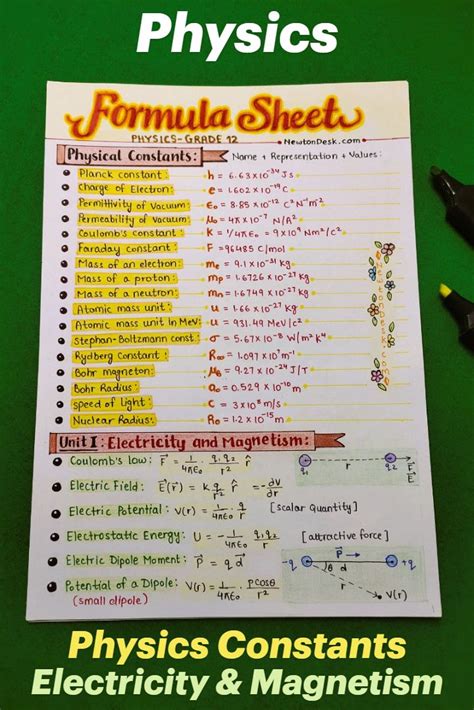 Physics
Formula Sheet
PHYSICS- GRADE 12
• NewtonDesk.com •
Physical Constants: Name + Representation + Values:
Planck constant: h = 6.63×10⁻³⁴ Js
Charge of Electron: e = 1.602×10⁻¹⁹ C
Permittivity of Vacuum: ε₀ = 8.85 ×10⁻¹² C²N⁻¹m⁻²
Permeability of Vacuum: μ₀ = 4π×10⁻⁷ N/A²
Coulomb's constant: K = 1/4πε₀ = 9×10⁹ Nm²/c²
Faraday constant: F = 96485 C/mol
Mass of an electron: me = 9.1×10⁻³¹ kg
Mass of a proton: mp = 1.6726 ×10⁻²⁷ kg
Mass of a neutron: mn = 1.6749 ×10⁻²⁷ kg
Atomic mass unit: u = 1.66×10⁻²⁷ kg
Atomic mass unit In MeV: u = 931.49 MeV/c²
Stephan-Boltzmann const: σ = 5.67×10⁻⁸ W/m²K⁴
Rydberg Constant: R∞ = 1.097 ×10⁷ m⁻¹
Bohr magneton: = 9.27×10⁻²⁴ J/T
Bohr Radius: a₀ = 0.529 ×10⁻¹⁰ m
speed of Light: c = 3×10⁸ m/s
Nuclear Radius: R₀ = 1.2 ×10⁻¹⁵ m
NewtonDesk.com
Unit I: Electricity and Magnetism:
Coulomb's low: F⃗ = 1/4πε₀ q₁q₂/r² r̂
q₁ r q₂ F⃗ E⃗
Electric Field: E⃗(r) = k q/r² r̂ = -dv/dr
Electric Potential: V(r) = 1/4πε₀ · q/r [scalar Quantity]
Electrostatic Energy: U = -1/4πε₀ q₁q₂/r [attractive force]
Electric Dipole Moment: P⃗ = q d
-q P⃗ +q
θ d
r V(r)
Potential of a Dipole: V(r) = 1/4πε₀ · pcosθ/r²
(small dipole)
Physics Constants
Electricity & Magnetism